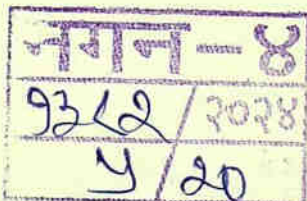 नगन-४
१३८२/२०२४
५/२०